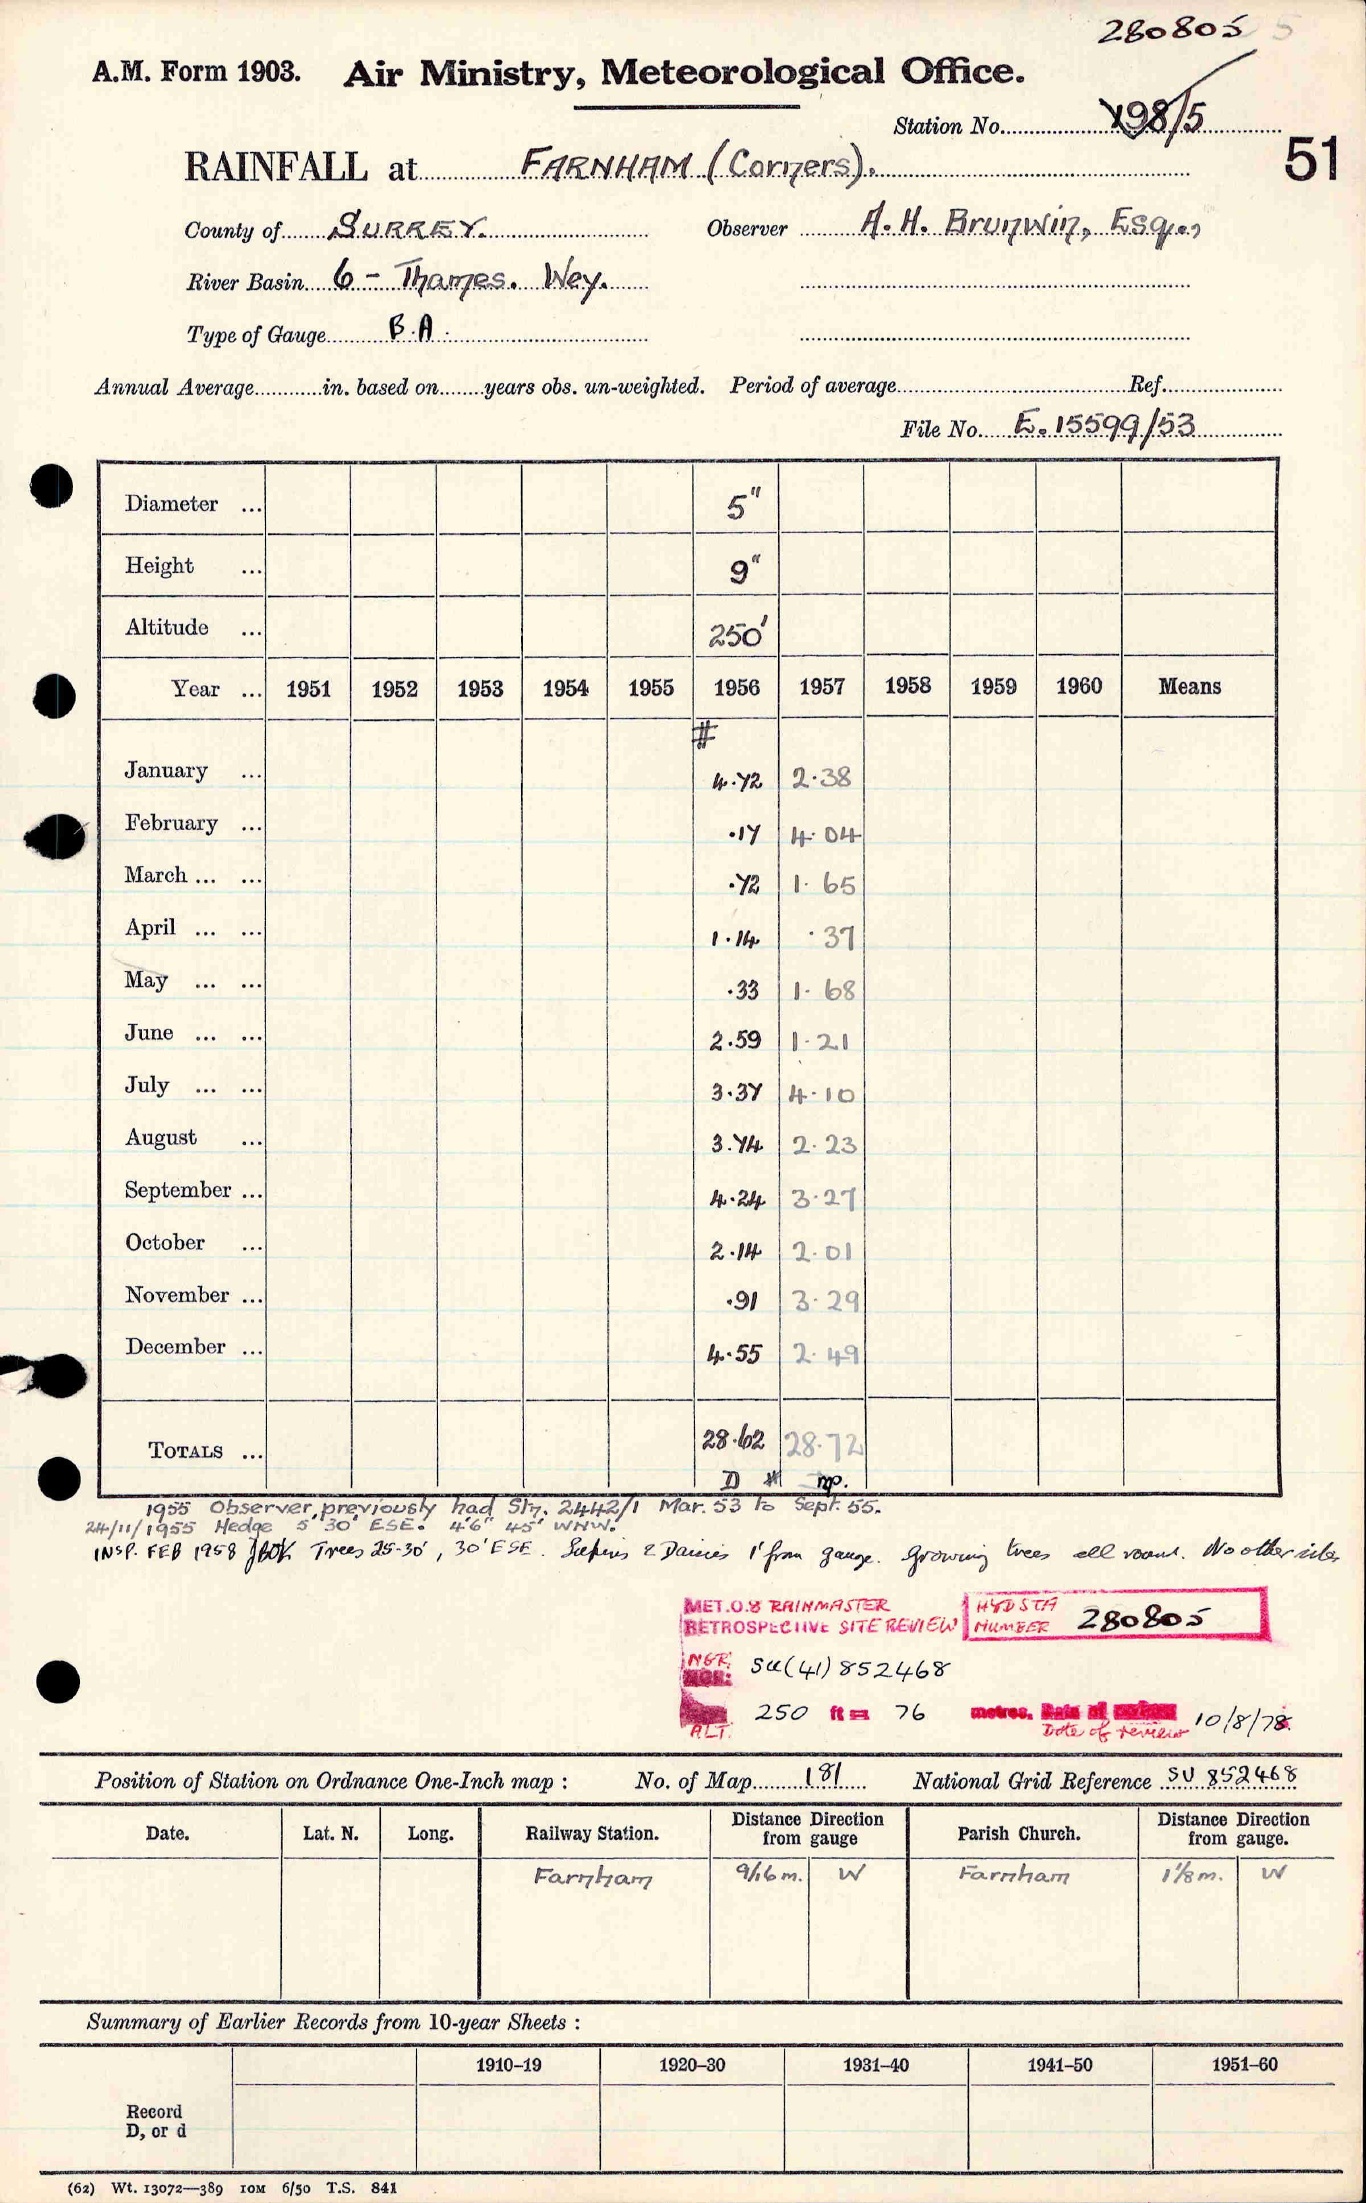 280805
A.M. Form 1903. Air Ministry, Meteorological Office.
Station No. 798/5
51
RAINFALL at FARNHAM (Corners).
County of SURREY. Observer A. H. Brunwin, Esq.,
River Basin 6 - Thames. Wey.
Type of Gauge B.A.
Annual Average in. based on years obs. un-weighted. Period of average Ref.
File No. E.15599/53
Diameter ... 5"
Height ... 9"
Altitude ... 250'
Year ... 1951 1952 1953 1954 1955 1956 1957 1958 1959 1960 Means
#
January ... 4.72 2.38
February ... .17 4.04
March ... ... .72 1.65
April ... ... 1.14 .37
May ... ... .33 1.68
June ... ... 2.59 1.21
July ... ... 3.37 4.10
August ... 3.74 2.23
September ... 4.24 3.27
October ... 2.14 2.01
November ... .91 3.29
December ... 4.55 2.49
TOTALS ... 28.62 28.72
D # np.
1955 Observer previously had Stn. 2442/1 Mar. 53 to Sept. 55.
24/11/1955 Hedge 5' 30' ESE. 4'6" 45' WNW.
INSP. FEB 1958 Trees 25-30', 30' ESE. Lupins & Daisies 1' from gauge. Growing trees all round. No other sites
MET.O.8 RAINMASTER HYDSTA
RETROSPECTIVE SITE REVIEW NUMBER 280805
NGR: SU(41)852468
NGR:
250 ft = 76 metres. Date of 10/8/78
ALT. Date of review
Position of Station on Ordnance One-Inch map : No. of Map 181 National Grid Reference SU 852468
Date. Lat. N. Long. Railway Station. Distance Direction from gauge Parish Church. Distance Direction from gauge.
Farnham 9/16 m. W Farnham 1 1/8 m. W
Summary of Earlier Records from 10-year Sheets :
1910–19 1920–30 1931–40 1941–50 1951–60
Record
D, or d
(62) Wt. 13072—389 10M 6/50 T.S. 841